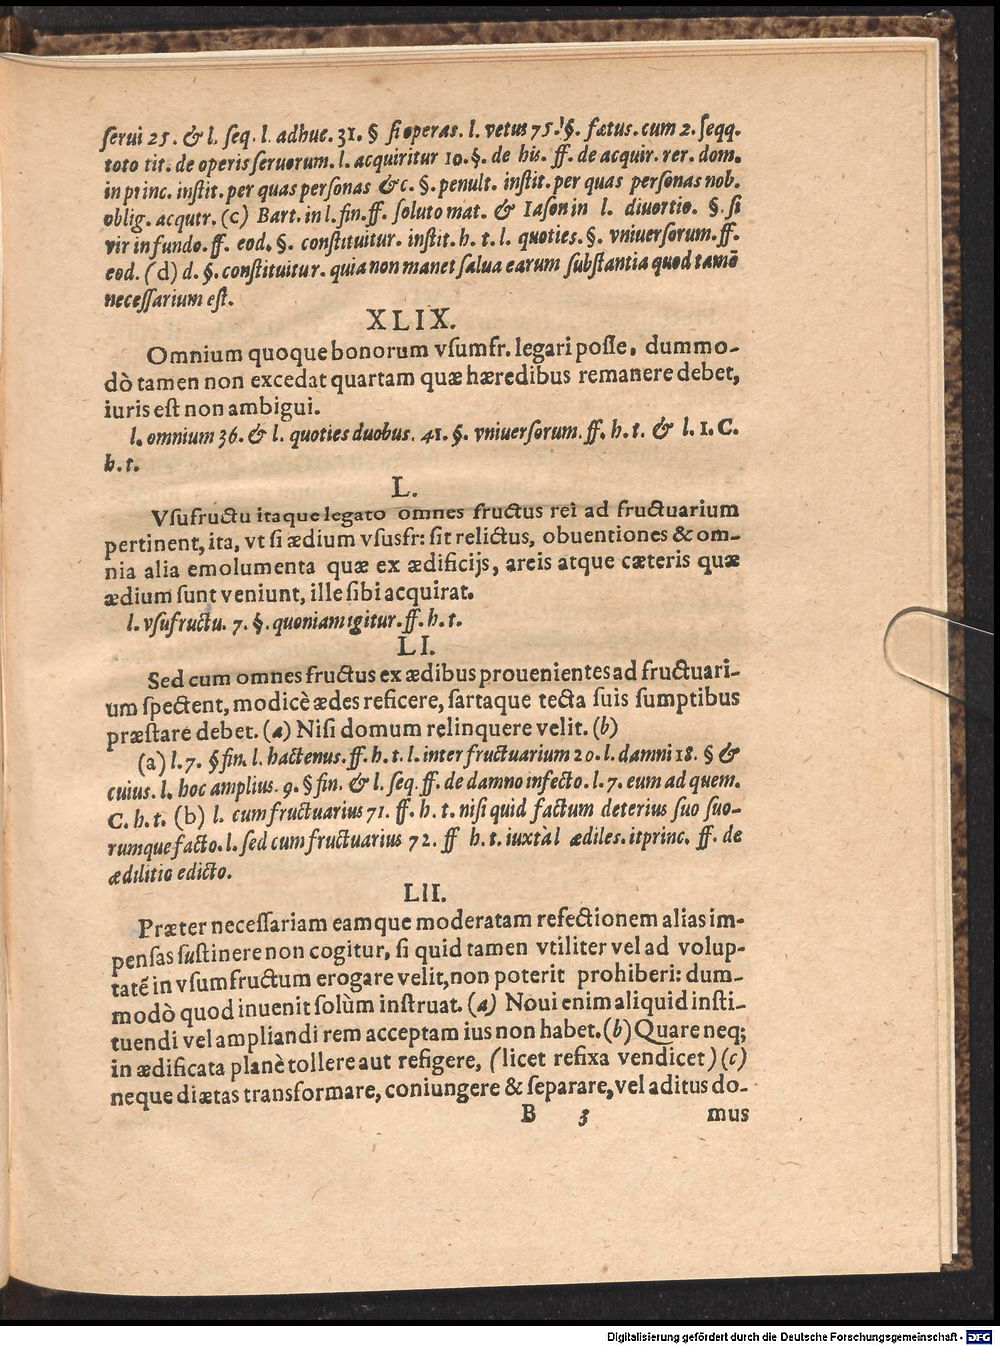 ſerui 25. & l. ſeq. l. adhuc. 31. § ſi operas. l. vetus 75. §. fætus. cum 2. ſeqq.
toto tit. de operis ſeruorum. l. acquiritur 10. §. de his. ff. de acquir. rer. dom.
in princ. inſtit. per quas perſonas &c. §. penult. inſtit. per quas perſonas nob.
oblig. acqutr. (c) Bart. in l. fin. ff. ſoluto mat. & Iaſon in l. diuortio. §. ſi
vir in fundo. ff. eod. §. conſtituitur. inſtit. h. t. l. quoties. §. vniuerſorum. ff.
eod. (d) d. §. conſtituitur. quia non manet ſalua earum ſubſtantia quod tamē
neceſſarium eſt.
XLIX.
Omnium quoque bonorum vſumfr. legari poſſe, dummo-
dò tamen non excedat quartam quæ hæredibus remanere debet,
iuris eſt non ambigui.
l. omnium 36. & l. quoties duobus. 41. §. vniuerſorum. ff. h. t. & l. 1. C.
h. t.
L.
Vſufructu itaque legato omnes fructus rei ad fructuarium
pertinent, ita, vt ſi ædium vſusfr: ſit relictus, obuentiones & om-
nia alia emolumenta quæ ex ædificijs, areis atque cæteris quæ
ædium ſunt veniunt, ille ſibi acquirat.
l. vſufructu. 7. §. quoniam igitur. ff. h. t.
LI.
Sed cum omnes fructus ex ædibus prouenientes ad fructuari-
um ſpectent, modicè ædes reficere, ſartaque tecta ſuis ſumptibus
præſtare debet. (a) Niſi domum relinquere velit. (b)
(a) l. 7. § fin. l. hactenus. ff. h. t. l. inter fructuarium 20. l. damni 18. § &
cuius. l. hoc amplius. 9. § fin. & l. ſeq. ff. de damno infecto. l. 7. eum ad quem.
C. h. t. (b) l. cum fructuarius 71. ff. h. t. niſi quid factum deterius ſuo ſuo-
rumque facto. l. ſed cum fructuarius 72. ff h. t. iuxta l ædiles. it princ. ff. de
ædilitio edicto.
LII.
Præter neceſſariam eamque moderatam refectionem alias im-
penſas ſuſtinere non cogitur, ſi quid tamen vtiliter vel ad volup-
tatē in vſumfructum erogare velit, non poterit prohiberi: dum-
modò quod inuenit ſolùm inſtruat. (a) Noui enim aliquid inſti-
tuendi vel ampliandi rem acceptam ius non habet. (b) Quare neq;
in ædificata planè tollere aut refigere, (licet refixa vendicet) (c)
neque diætas transformare, coniungere & ſeparare, vel aditus do-
B 3 mus
Digitalisierung gefördert durch die Deutsche Forschungsgemeinschaft - DFG